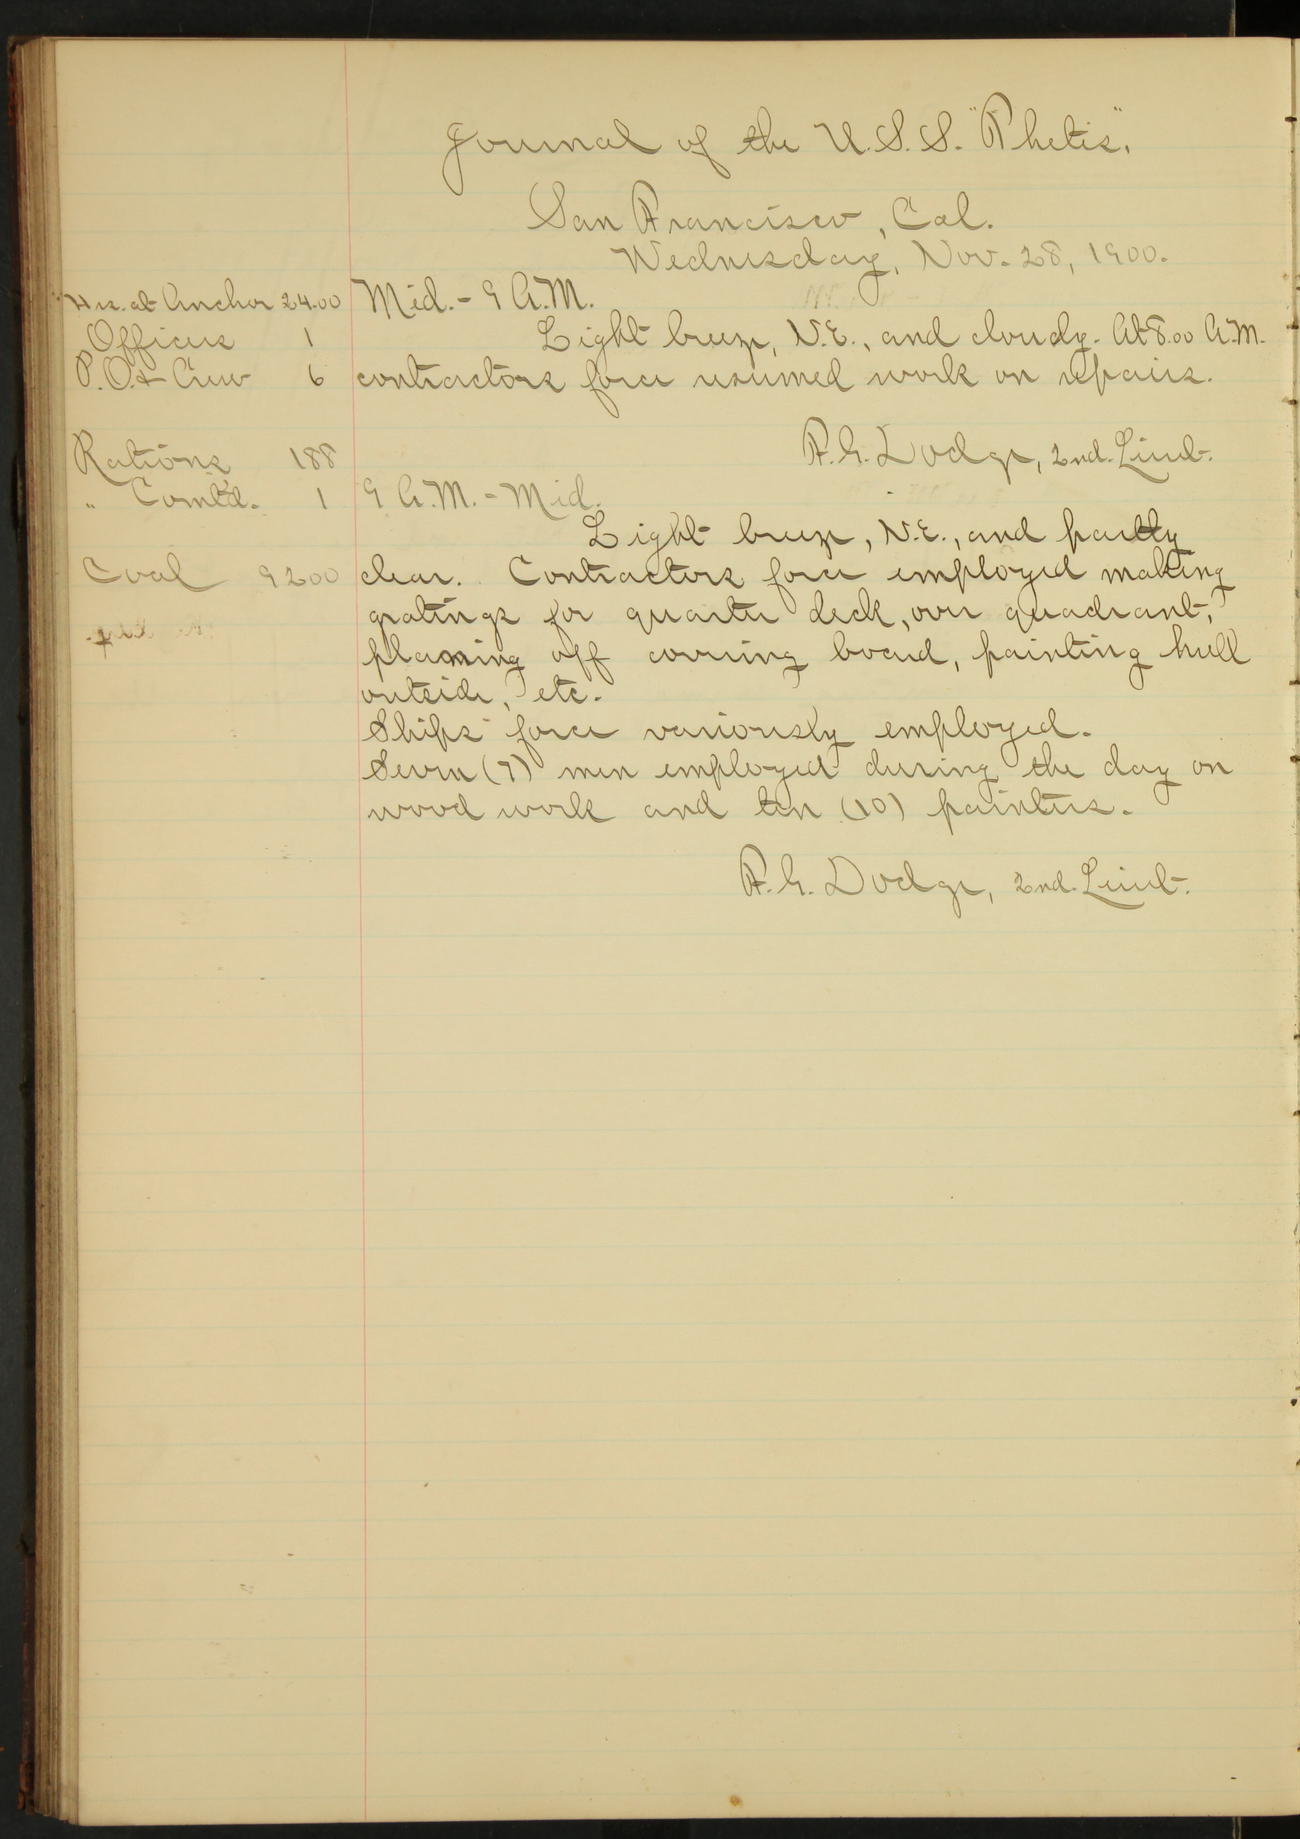 Journal of the U.S.S. "Thetis",
San Francisco, Cal.
Wednesday, Nov. 28, 1900.
Hrs. at Anchor 24.00
Officers 1
P.O. & Crew 6
Rations 188
" Comt'd. 1
Coal 9200
Mid. - 9 A.M.
Light breeze, N.E., and cloudy. At 8.00 A.M.
contractors force resumed work on repairs.
F.G. Dodge, 2nd. Lieut.
9 A.M. - Mid.
Light breeze, N.E., and partly
clear. Contractors force employed making
gratings for quarter deck, over quadrant,
planing off covering board, painting hull
outside, etc.
Ships force variously employed.
Seven (7) men employed during the day on
wood work and ten (10) painters.
F.G. Dodge, 2nd. Lieut.